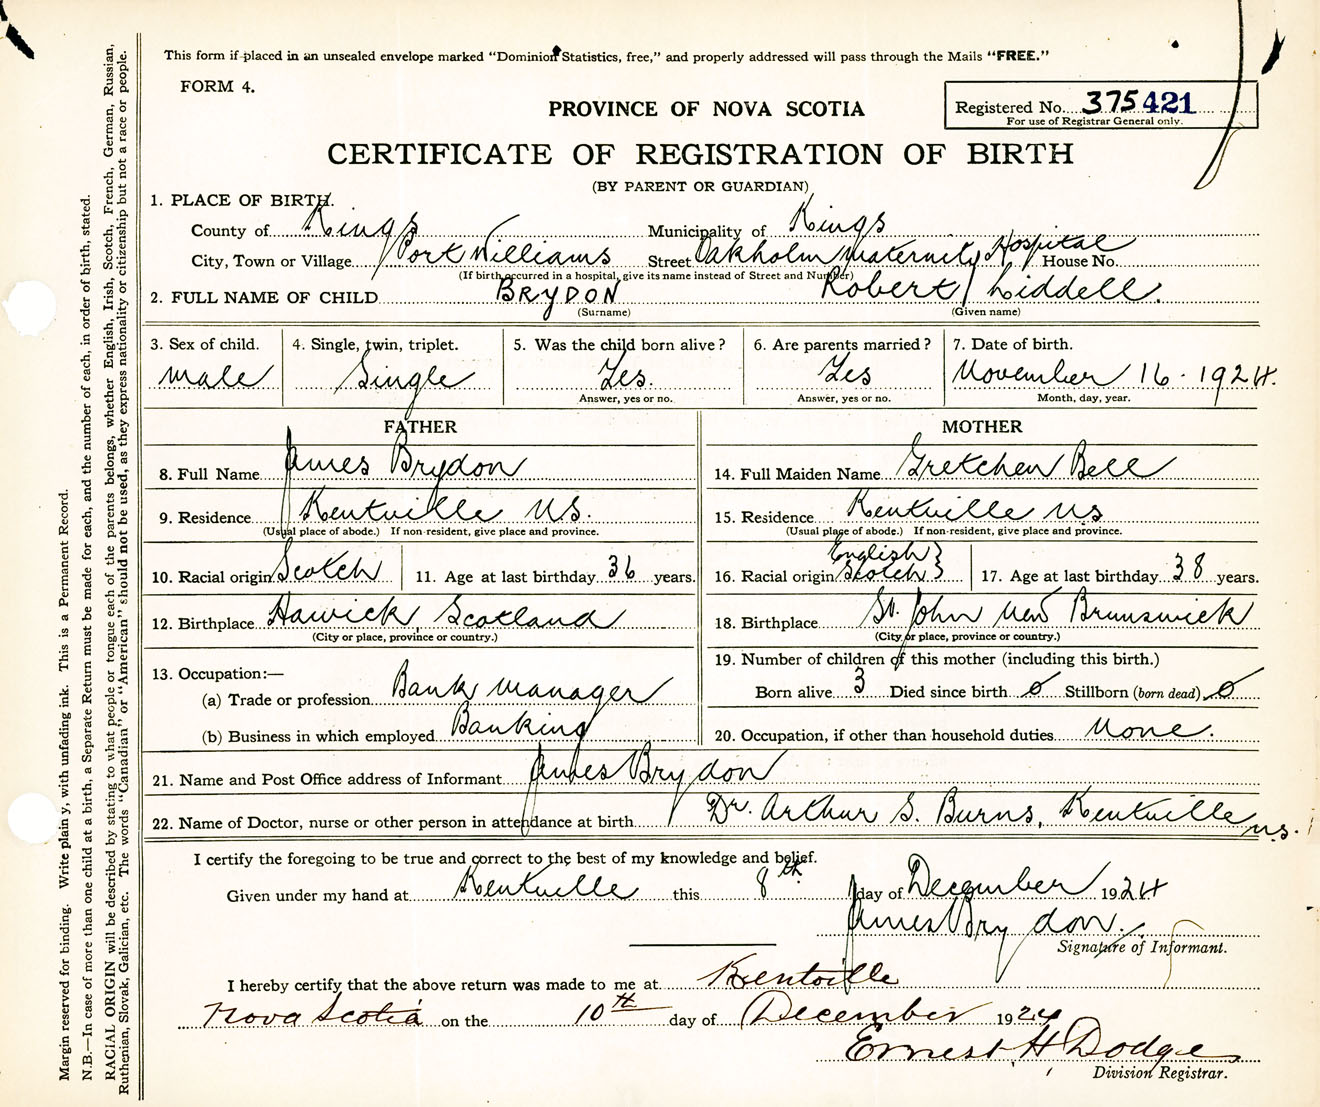 This form if placed in an unsealed envelope marked "Dominion Statistics, free," and properly addressed will pass through the Mails "FREE."
FORM 4.
PROVINCE OF NOVA SCOTIA
Registered No. 375421
For use of Registrar General only.
CERTIFICATE OF REGISTRATION OF BIRTH
(BY PARENT OR GUARDIAN)
1. PLACE OF BIRTH.
County of Kings Municipality of Kings
City, Town or Village Port Williams Street Oakholm Maternity Hospital House No.
(If birth occurred in a hospital, give its name instead of Street and Number)
2. FULL NAME OF CHILD BRYDON Robert Liddell.
(Surname) (Given name)
3. Sex of child. 4. Single, twin, triplet. 5. Was the child born alive? 6. Are parents married? 7. Date of birth.
Male Single Yes. Yes November 16. 1924.
Answer, yes or no. Answer, yes or no. Month, day, year.
FATHER MOTHER
8. Full Name James Brydon 14. Full Maiden Name Gretchen Bell
9. Residence Kentville N.S. 15. Residence Kentville NS
(Usual place of abode.) If non-resident, give place and province. (Usual place of abode.) If non-resident, give place and province.
10. Racial origin Scotch 11. Age at last birthday 36 years. 16. Racial origin English } Scotch } 17. Age at last birthday 38 years.
12. Birthplace Hawick, Scotland 18. Birthplace St. John New Brunswick
(City or place, province or country.) (City or place, province or country.)
13. Occupation:— 19. Number of children of this mother (including this birth.)
(a) Trade or profession Bank Manager Born alive 3 Died since birth 0 Stillborn (born dead) 0
(b) Business in which employed Banking 20. Occupation, if other than household duties None.
21. Name and Post Office address of Informant James Brydon
22. Name of Doctor, nurse or other person in attendance at birth Dr. Arthur S. Burns, Kentville N.S.
I certify the foregoing to be true and correct to the best of my knowledge and belief.
Given under my hand at Kentville this 8th day of December 1924
James Brydon.
Signature of Informant.
I hereby certify that the above return was made to me at Kentville
Nova Scotia on the 10th day of December 1924
Ernest H. Dodge
Division Registrar.
Margin reserved for binding. Write plain y, with unfading ink. This is a Permanent Record.
N.B.—In case of more than one child at a birth, a Separate Return must be made for each, and the number of each, in order of birth, stated.
RACIAL ORIGIN will be described by stating to what people or tongue each of the parents belongs, whether English, Irish, Scotch, French, German, Russian,
Ruthenian, Slovak, Galician, etc. The words "Canadian" or "American" should not be used, as they express nationality or citizenship but not a race or people.